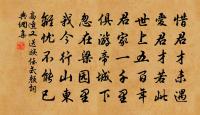 惜君才未遇
愛君才若此
世上五百年
吾家一千里
俱遊帝城下
忽在梁園里
我今行山東
離憂不能已
高適又送族侄式顏詞
典網集